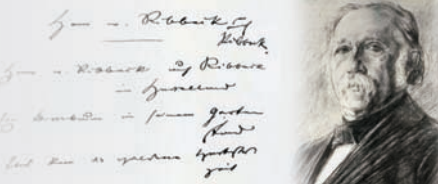 Herr v. Ribbeck auf
Ribbeck.
Herr v. Ribbeck auf Ribbeck
im Havelland
Ein Birnbaum in seinem Garten
stand
Und kam die goldene Herbstes
zeit